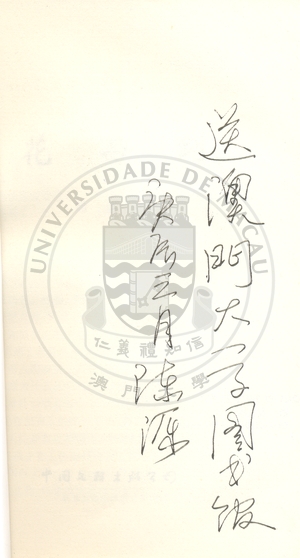 送澳門大学图书馆
庚辰三月陈
UNIVERSIDADE DE MACAU
仁義禮知信
澳門大學